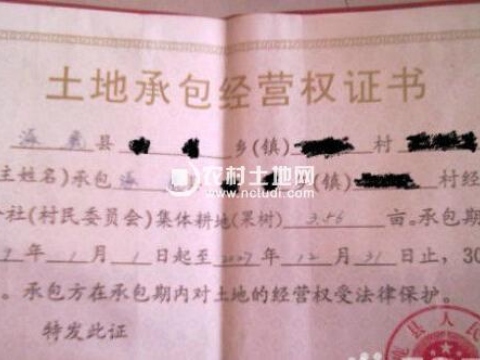 土地承包经营权证书
县 乡(镇) 村
主姓名)承包 (镇) 村经
农村土地网
www.nctudi.com
社(村民委员会)集体耕地(果树) 3.56 亩。承包期
年 1 月 1 日起至2027年12月31日止, 30
。承包方在承包期内对土地的经营权受法律保护。
特发此证
县人民